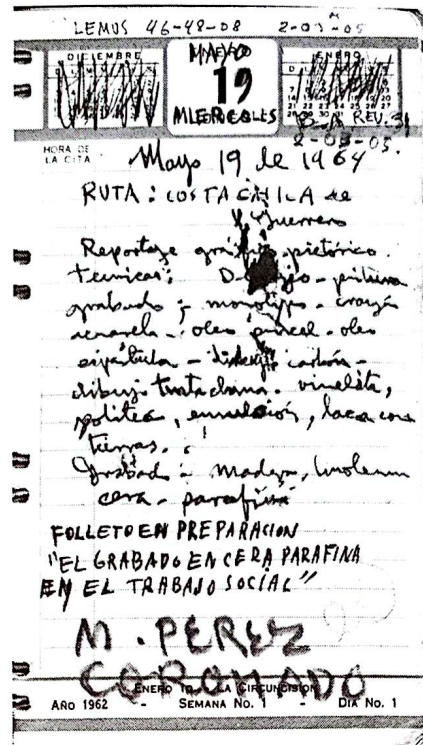 LEMUS 46-48-08 2-03-05
DICIEMBRE MAYO ENERO
19
MIERCOLES
REV. 31
2-03-05.
HORA DE
LA CITA
Mayo 19 de 1964
RUTA: COSTA CHICA de
Guerrero
Reportaje gráfico pictórico.
tecnicas: pintura
grabado; monotipo - crayón
acuarela - oleo pincel - oleo
espátula - dibujo carbón -
dibujo tinta china. vinelita,
politec, emulsión, laca con
tierras.
Grabado: Madera, linoleum
cera - parafina
FOLLETO EN PREPARACION
"EL GRABADO EN CERA PARAFINA
EN EL TRABAJO SOCIAL"
M. PEREZ
CORONADO
ENERO 1o. LA CIRCUNCISION
AÑO 1962 - SEMANA No. 1 - DIA No. 1